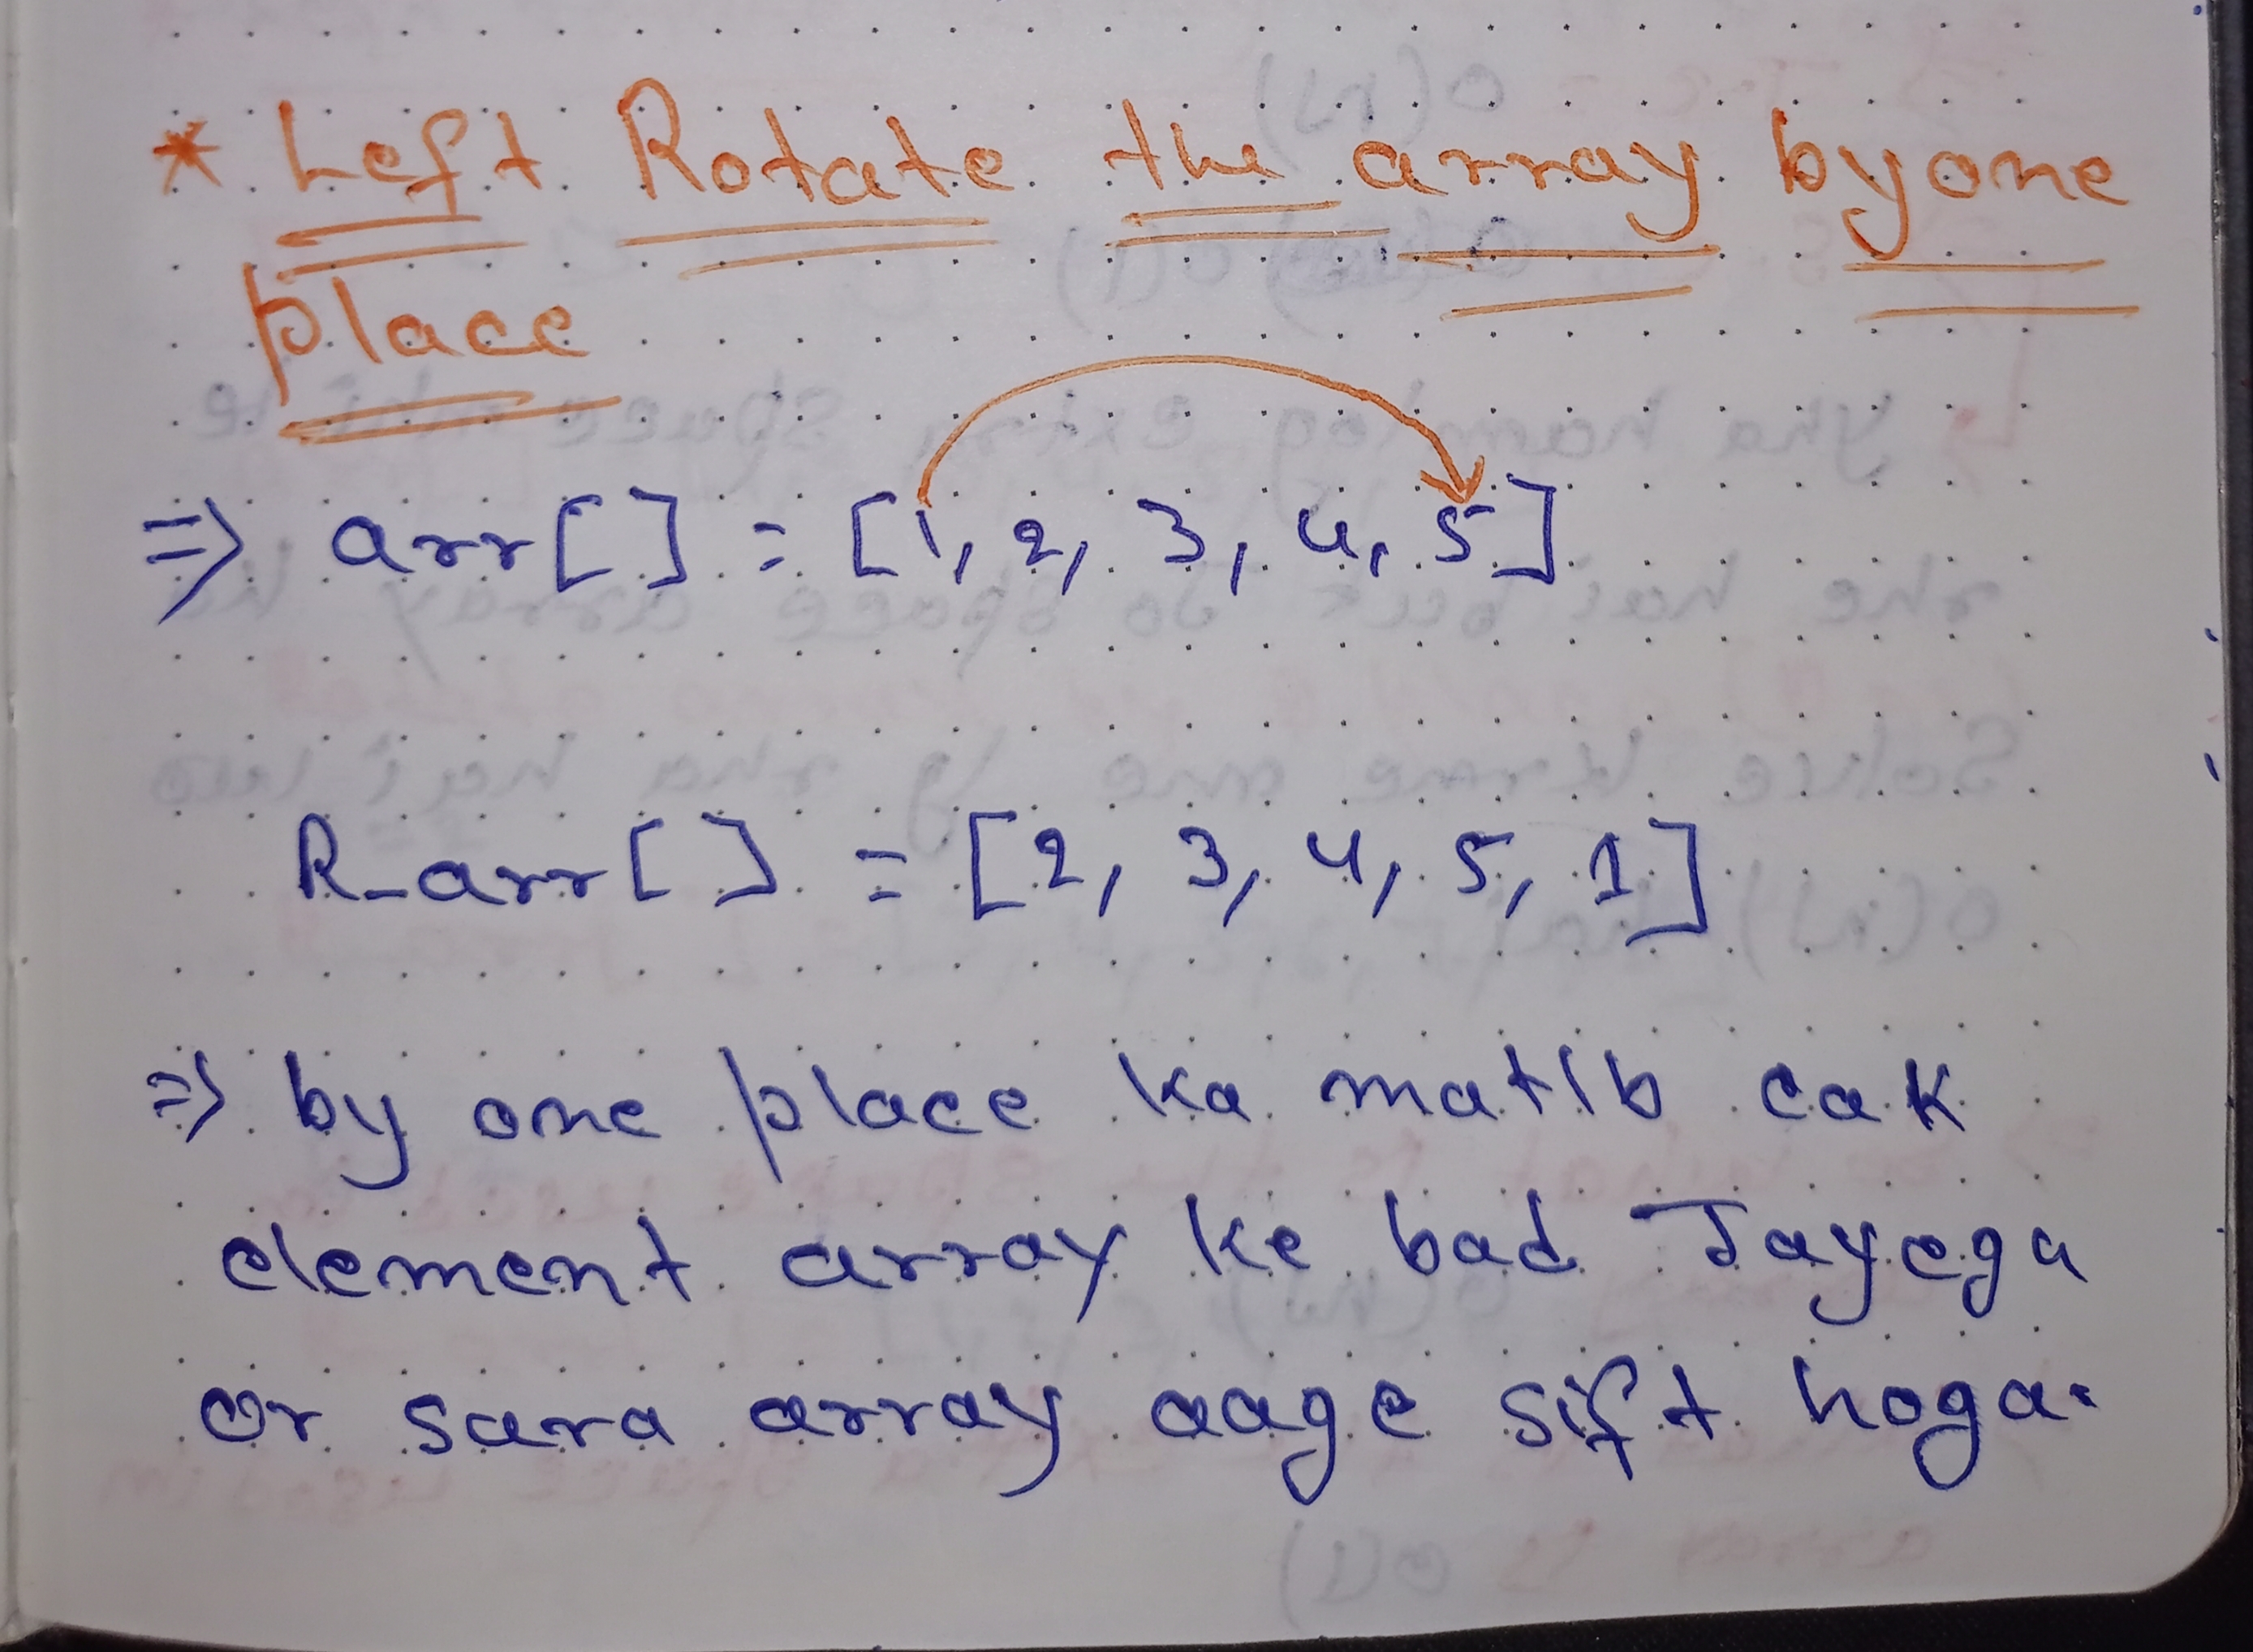 * Left Rotate the array by one
place
=> arr[] = [1, 2, 3, 4, 5]
R_arr[] = [2, 3, 4, 5, 1]
=> by one place ka matlb eak
element array ke bad Jayega
or sara array aage sift hoga.